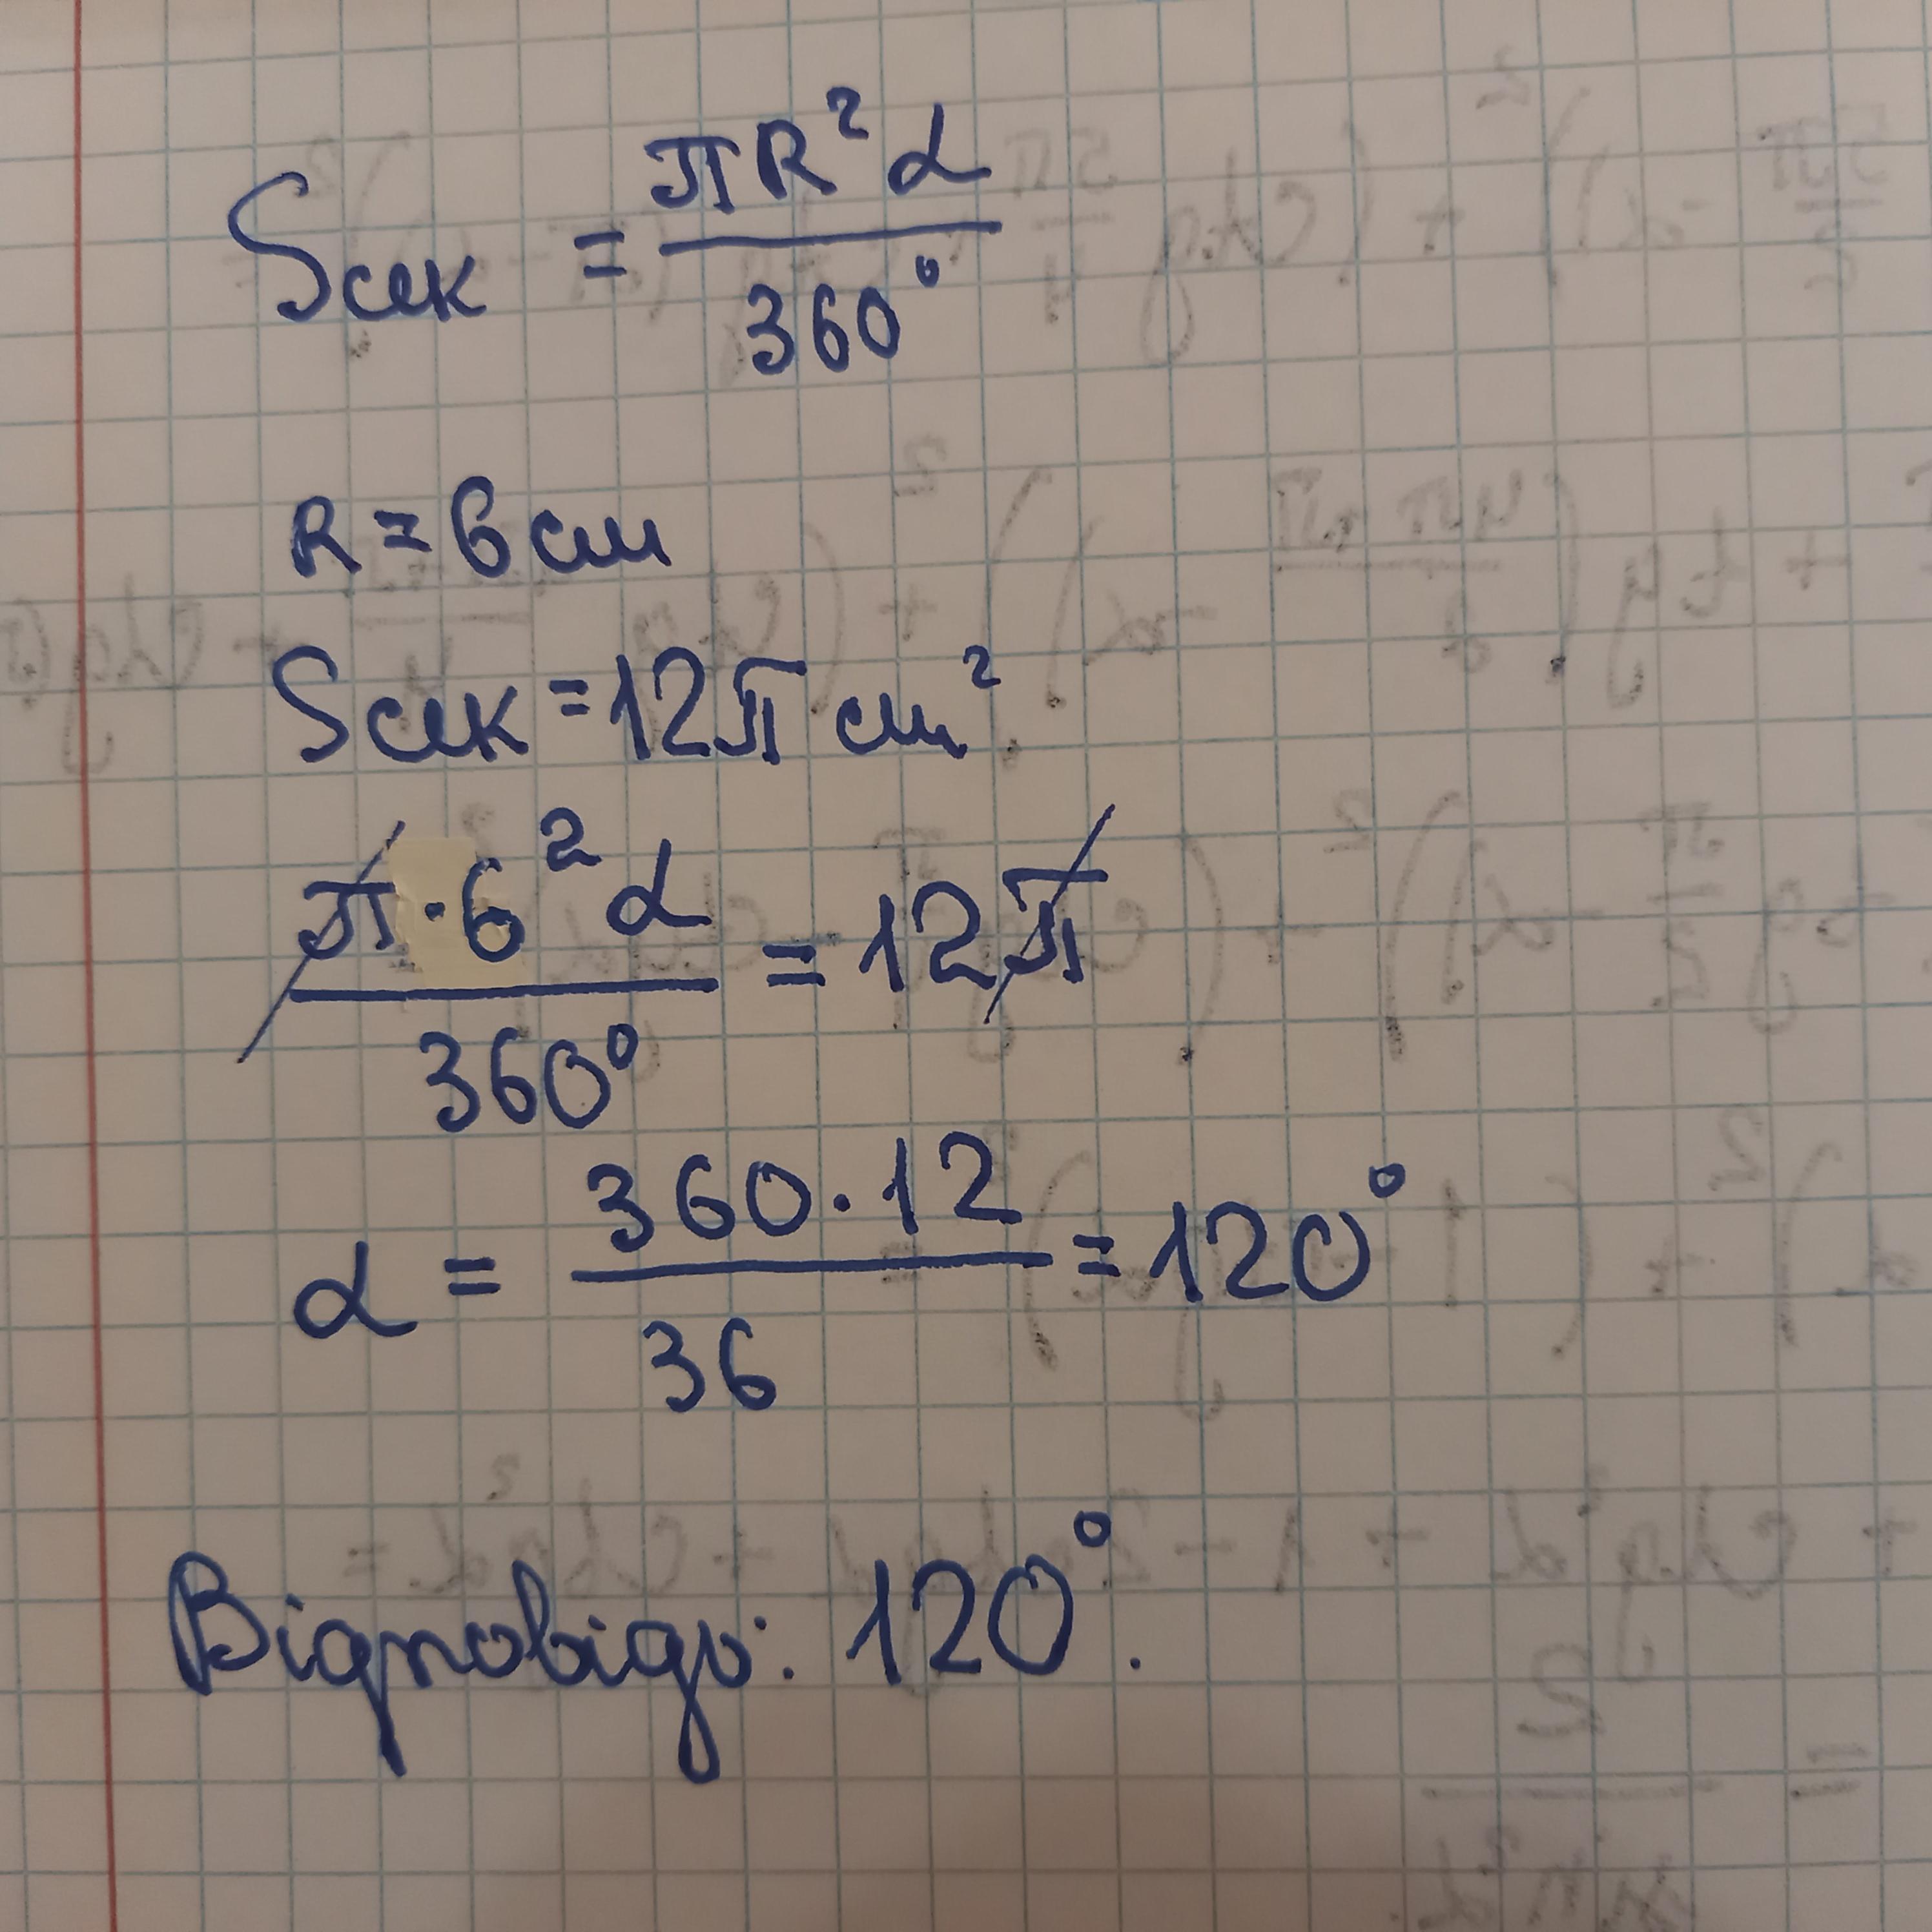 Sсек = πR²α / 360°
R = 6 см
Sсек = 12π см²
π · 6² α / 360° = 12π
α = 360 · 12 / 36 = 120°
Відповідь: 120°.